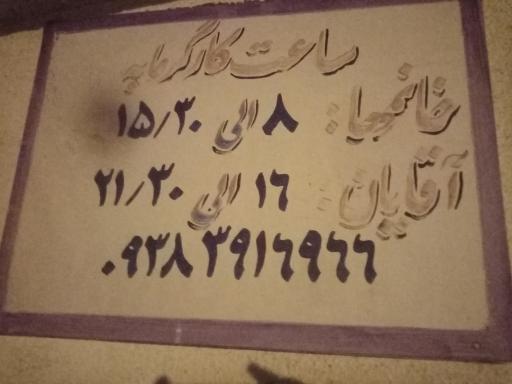 ساعت کار گرمابه
خانمها: ۸ الی ۱۵/۳۰
آقایان: ۱۶ الی ۲۱/۳۰
۰۹۳۸۳۹۱۶۹۶۶